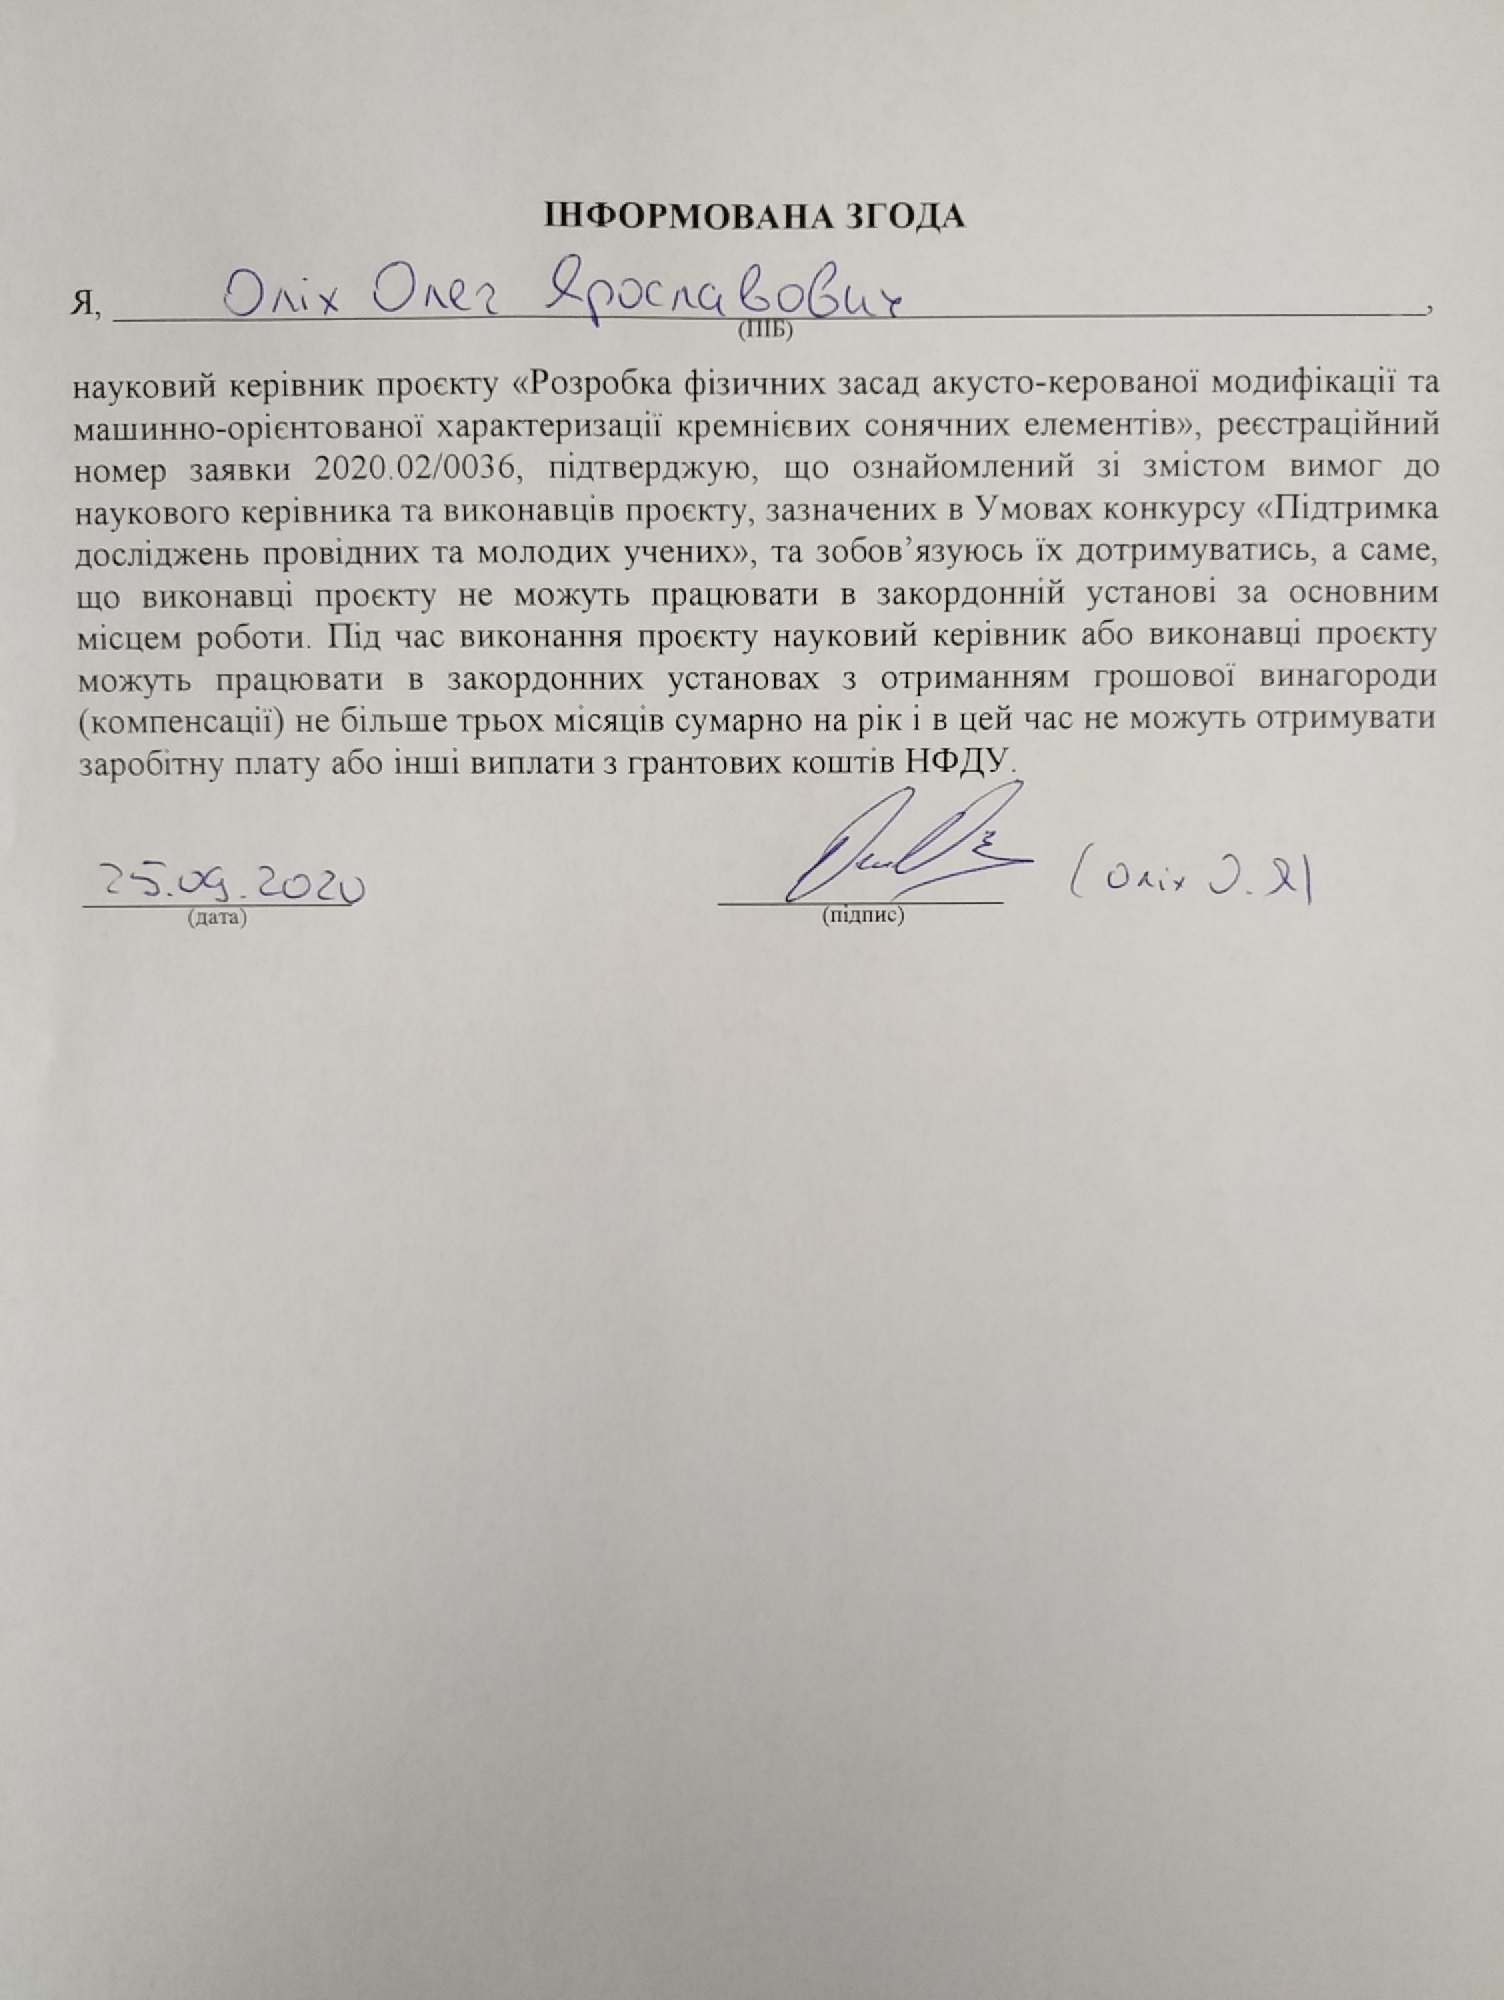 ІНФОРМОВАНА ЗГОДА
Я, Оліх Олег Ярославович,
(ПІБ)
науковий керівник проєкту «Розробка фізичних засад акусто-керованої модифікації та
машинно-орієнтованої характеризації кремнієвих сонячних елементів», реєстраційний
номер заявки 2020.02/0036, підтверджую, що ознайомлений зі змістом вимог до
наукового керівника та виконавців проєкту, зазначених в Умовах конкурсу «Підтримка
досліджень провідних та молодих учених», та зобов’язуюсь їх дотримуватись, а саме,
що виконавці проєкту не можуть працювати в закордонній установі за основним
місцем роботи. Під час виконання проєкту науковий керівник або виконавці проєкту
можуть працювати в закордонних установах з отриманням грошової винагороди
(компенсації) не більше трьох місяців сумарно на рік і в цей час не можуть отримувати
заробітну плату або інші виплати з грантових коштів НФДУ.
25.09.2020 (Оліх О.Я)
(дата) (підпис)